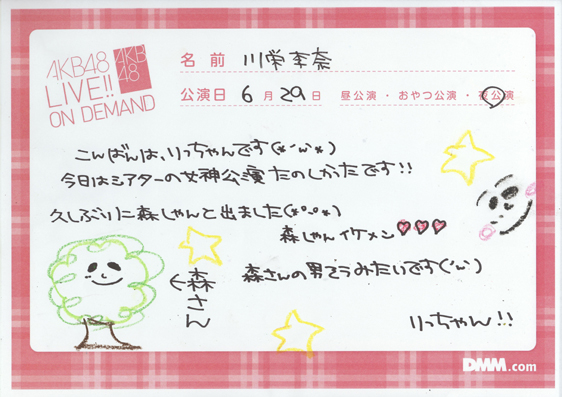 AKB48
LIVE!!
ON DEMAND
AKB
48
名前 川栄李奈
公演日 6月29日 昼公演・おやつ公演・夜公演
こんばんは、りっちゃんです(*´ω`*)
今日はシアターの女神公演たのしかったです!!
久しぶりに森しゃんと出ました(*°.°*)
森しゃんイケメン♥♥♥
←森さん
森さんの男てうみたいです('ω`)
りっちゃん!!
DMM.com